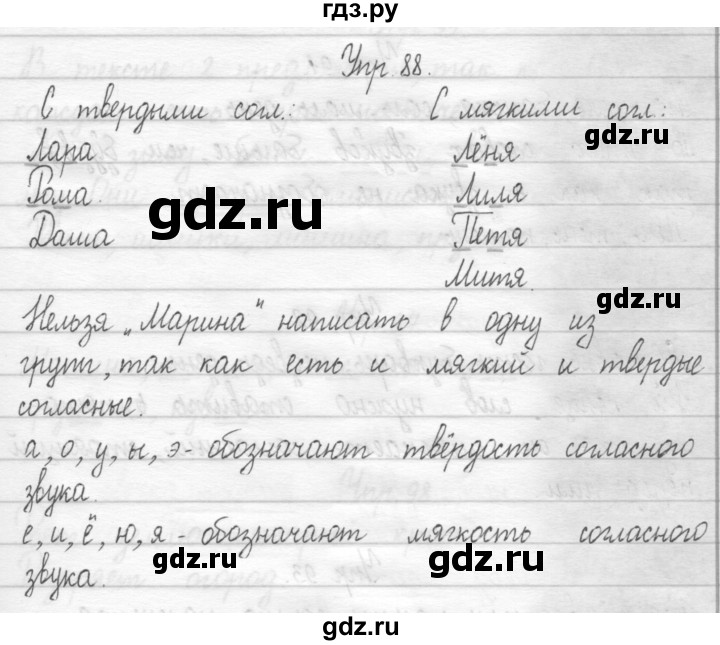 гдз.ру
Упр. 88.
С твердыми согл.: С мягкими согл.:
Лара Лёня
Рома. Лиля
Даша Петя
Митя.
gdz.ru
gdz.ru
gdz.ru
Нельзя "Марина" написать в одну из
групп, так как есть и мягкий и твердые
согласные.
а, о, у, ы, э - обозначают твёрдость согласного
звука.
е, и, ё, ю, я - обозначают мягкость согласного
звука.
gdz.ru
gdz.ru
gdz.ru